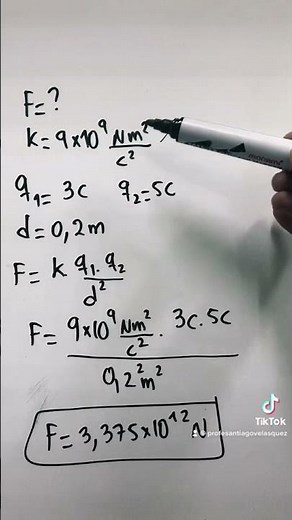 F=?
K=9x10⁹ Nm²/c²
q₁= 3c q₂=5c
d=0,2m
F= K q₁.q₂/d²
F= 9x10⁹ Nm²/c² . 3c.5c
0,2²m²
F=3,375x10¹² N
TikTok
@profesantiagovelasquez